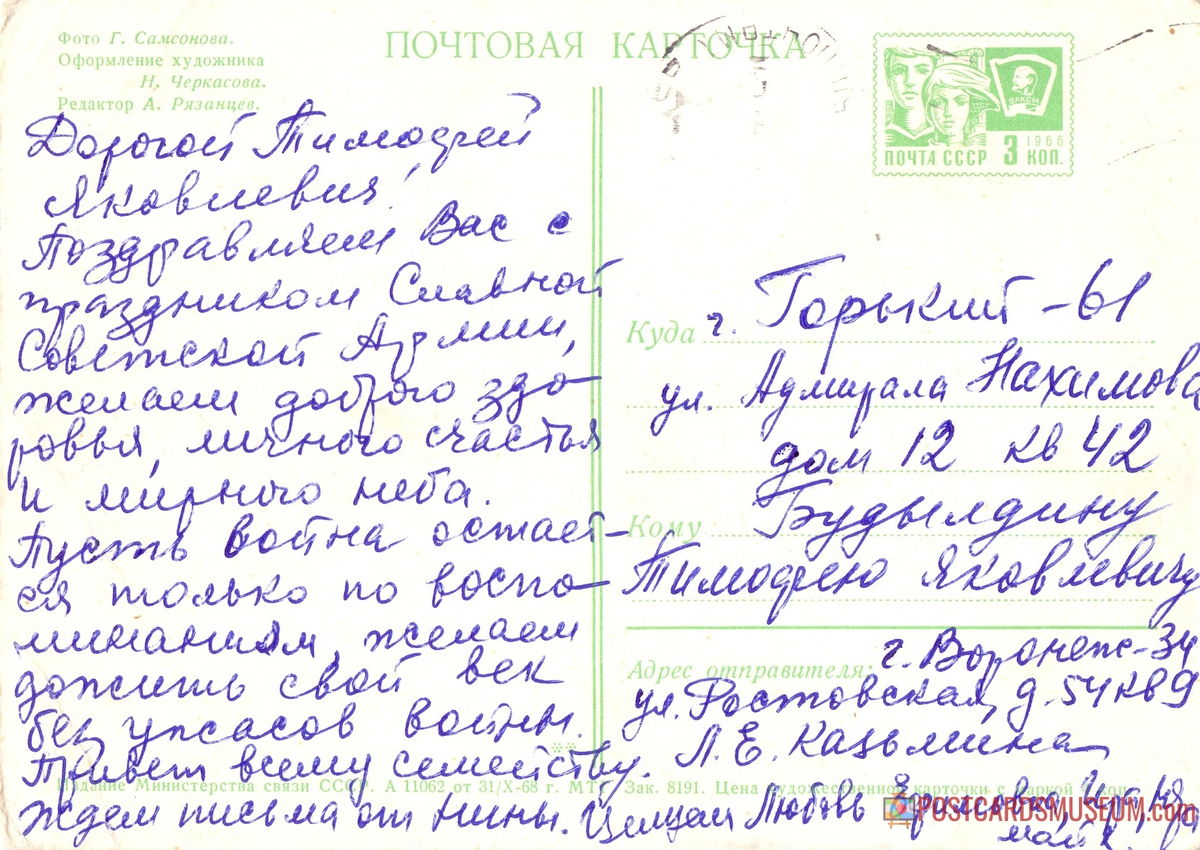 Фото Г. Самсонова.
Оформление художника
Н. Черкасова.
Редактор А. Рязанцев.
ПОЧТОВАЯ КАРТОЧКА
ВЛКСМ
1966
ПОЧТА СССР 3 КОП.
Дорогой Тимофей
Яковлевич!
Поздравляем Вас с
праздником Славной
Советской Армии,
желаем доброго здо-
ровья, личного счастья
и мирного неба.
Пусть война остает-
ся только по воспо-
минаниям, желаем
дожить свой век
без ужасов войны.
Привет всему семейству.
Ждем письма от Нины. Целуем Любовь
Куда г. Горький-61
ул. Адмирала Нахимова
дом 12 кв 42
Кому Будылдину
Тимофею Яковлевичу
Адрес отправителя: г. Воронеж-34
ул. Ростовская, д. 54 кв 9
Л. Е. Казьмина
Издание Министерства связи СССР. А 11062 от 31/X-68 г. Зак. 8191. Цена художественной карточки с маркой 4 коп.
POSTCARDSMUSEUM.COM